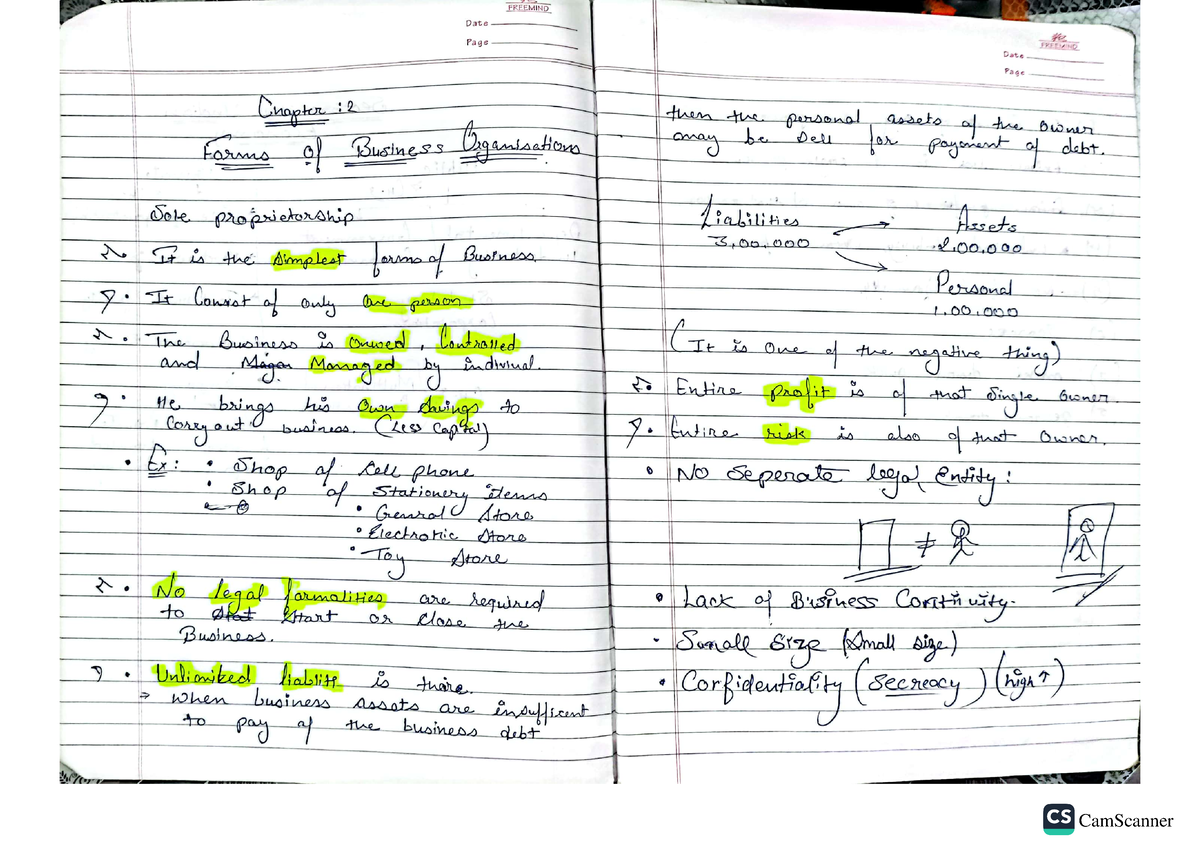 FREEMIND
Date
Page
Chapter : 2
Forms of Business Organisations
Sole proprietorship
• It is the simplest forms of Business.
• It Consist of only One person
• The Business is Onwed, Controlled
and Managed by indiviual.
• He brings his Own Savings to
Carey out business. (Less Capital)
• Ex: • Shop of Cell phone
• Shop of Stationery items
• Genral Store
• Electronic Store
• Toy Store
• No legal formalities are required
to Start Start or Close the
Business.
• Unlimiked liablite is there.
→ when business assets are insufficent
to pay of the business debt
FREEMIND
Date
Page
then the personal assets of the owner
may be Sell for payment of debt.
Liabilities → Assets
3,00,000 2,00,000
Personal
1,00,000
(It is One of the negative thing)
• Entire profit is of that Single Owner.
• Entire risk is also of that Owner.
• No Seperate legal Entity:
≠
• Lack of Business Continuity.
• Small Size (Small size)
• Confidentiality (Secreacy) (high ↑)
CS CamScanner